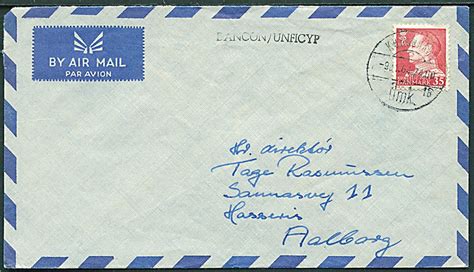 BY AIR MAIL
PAR AVION
DANCON/UNFICYP
DANMARK
35
Hr. direktør
Tage Rasmussen
Saunasvej 11
Hasseris
Aalborg